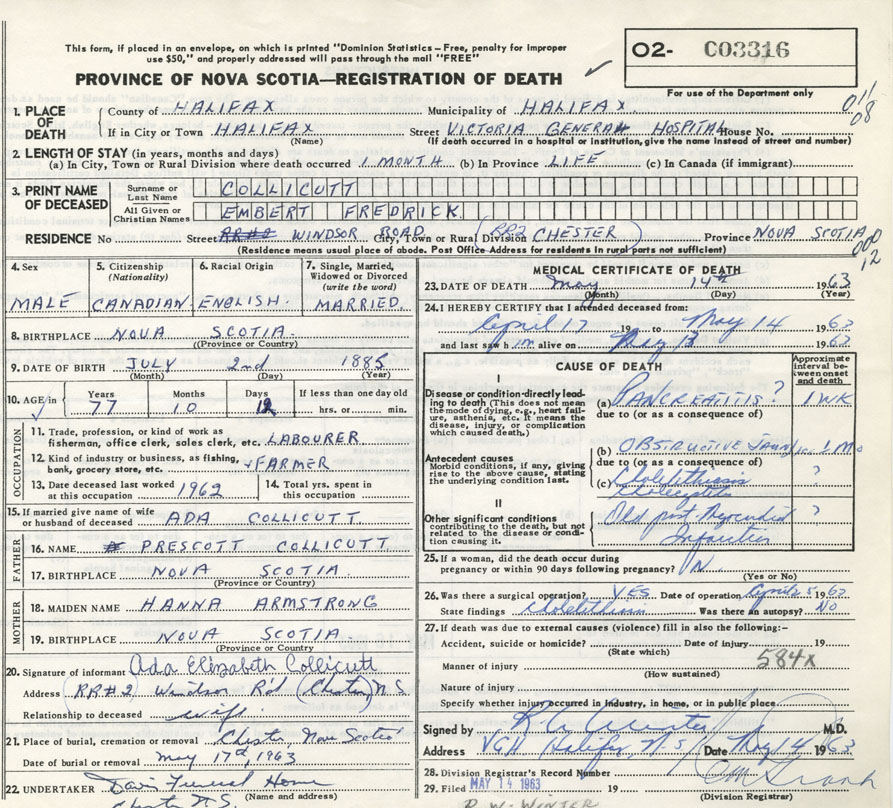 This form, if placed in an envelope, on which is printed "Dominion Statistics - Free, penalty for improper
use $50," and properly addressed will pass through the mail "FREE"
PROVINCE OF NOVA SCOTIA—REGISTRATION OF DEATH
O2- C03316
For use of the Department only
011
08
1. PLACE OF DEATH County of HALIFAX Municipality of HALIFAX
If in City or Town HALIFAX (Name) Street VICTORIA GENERAL HOSPITAL House No.
(If death occurred in a hospital or institution, give the name instead of street and number)
2. LENGTH OF STAY (in years, months and days)
(a) In City, Town or Rural Division where death occurred 1 MONTH (b) In Province LIFE (c) In Canada (if immigrant)
3. PRINT NAME OF DECEASED
Surname or Last Name COLLICUTT
All Given or Christian Names EMBERT FREDRICK
RESIDENCE No Street RR#2 WINDSOR ROAD City, Town or Rural Division (RR2) CHESTER Province NOVA SCOTIA
(Residence means usual place of abode. Post Office Address for residents in rural parts not sufficient)
000
12
4. Sex MALE
5. Citizenship (Nationality) CANADIAN
6. Racial Origin ENGLISH.
7. Single, Married, Widowed or Divorced (write the word) MARRIED.
8. BIRTHPLACE NOVA SCOTIA.
(Province or Country)
9. DATE OF BIRTH JULY 2nd 1885
(Month) (Day) (Year)
10. AGE in Years 77 Months 10 Days 12 If less than one day old hrs. or min.
OCCUPATION
11. Trade, profession, or kind of work as fisherman, office clerk, sales clerk, etc. LABOURER
12. Kind of industry or business, as fishing, bank, grocery store, etc. + FARMER
13. Date deceased last worked at this occupation 1962
14. Total yrs. spent in this occupation
15. If married give name of wife or husband of deceased ADA COLLICUTT
FATHER
16. NAME PRESCOTT COLLICUTT
17. BIRTHPLACE NOVA SCOTIA.
(Province or Country)
MOTHER
18. MAIDEN NAME HANNA ARMSTRONG
19. BIRTHPLACE NOVA SCOTIA
(Province or Country)
20. Signature of informant Ada Elizabeth Collicutt
Address (RR#2) Windsor R'd (Chester) N.S.
Relationship to deceased wife.
21. Place of burial, cremation or removal Chester, Nova Scotia
Date of burial or removal may 17th, 1963
22. UNDERTAKER Davis Funeral Home
(Name and address)
Chester N.S.
MEDICAL CERTIFICATE OF DEATH
23. DATE OF DEATH May 14th 1963
(Month) (Day) (Year)
24. I HEREBY CERTIFY that I attended deceased from:
April 17 19 to May 14 1963
and last saw h im alive on May 13 1963
CAUSE OF DEATH
Approximate interval between onset and death
I
Disease or condition directly leading to death (This does not mean the mode of dying, e.g., heart failure, asthenia, etc. It means the disease, injury, or complication which caused death.)
(a) PANCREATITIS? 1 WK
due to (or as a consequence of)
Antecedent causes
Morbid conditions, if any, giving rise to the above cause, stating the underlying condition last.
(b) OBSTRUCTIVE 1 Mo
due to (or as a consequence of)
(c) Cholelithiasis ?
II
Other significant conditions contributing to the death, but not related to the disease or condition causing it.
Old post Myocardial ?
25. If a woman, did the death occur during pregnancy or within 90 days following pregnancy?
(Yes or No)
26. Was there a surgical operation? YES Date of operation April 25 1963
State findings Cholelithiasis Was there an autopsy? NO
27. If death was due to external causes (violence) fill in also the following:—
Accident, suicide or homicide? Date of injury 19
(State which)
Manner of injury 584x
(How sustained)
Nature of injury
Specify whether injury occurred in Industry, in home, or in public place
Signed by M.D.
Address VGH Halifax, N.S. Date May 14 1963
28. Division Registrar's Record Number
29. Filed MAY 14 1963 19
(Division Registrar)
R. W. WINTER